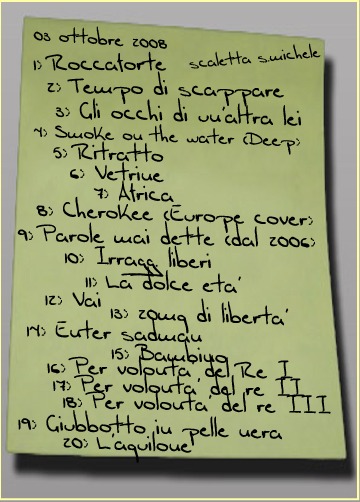 03 ottobre 2008
scaletta s.michele
1) Roccaforte
2) Tempo di scappare
3) Gli occhi di un'altra lei
4) Smoke on the water (Deep)
5) Ritratto
6) Vetrine
7) Africa
8) Cherokee (Europe cover)
9) Parole mai dette (dal 2006)
10) Irragg liberi
11) La dolce eta'
12) Vai
13) 20mq di liberta'
14) Enter sadman
15) Bambino
16) Per volonta' del Re I
17) Per volonta' del re II
18) Per volonta' del re III
19) Giubbotto in pelle nera
20) L'aquilone